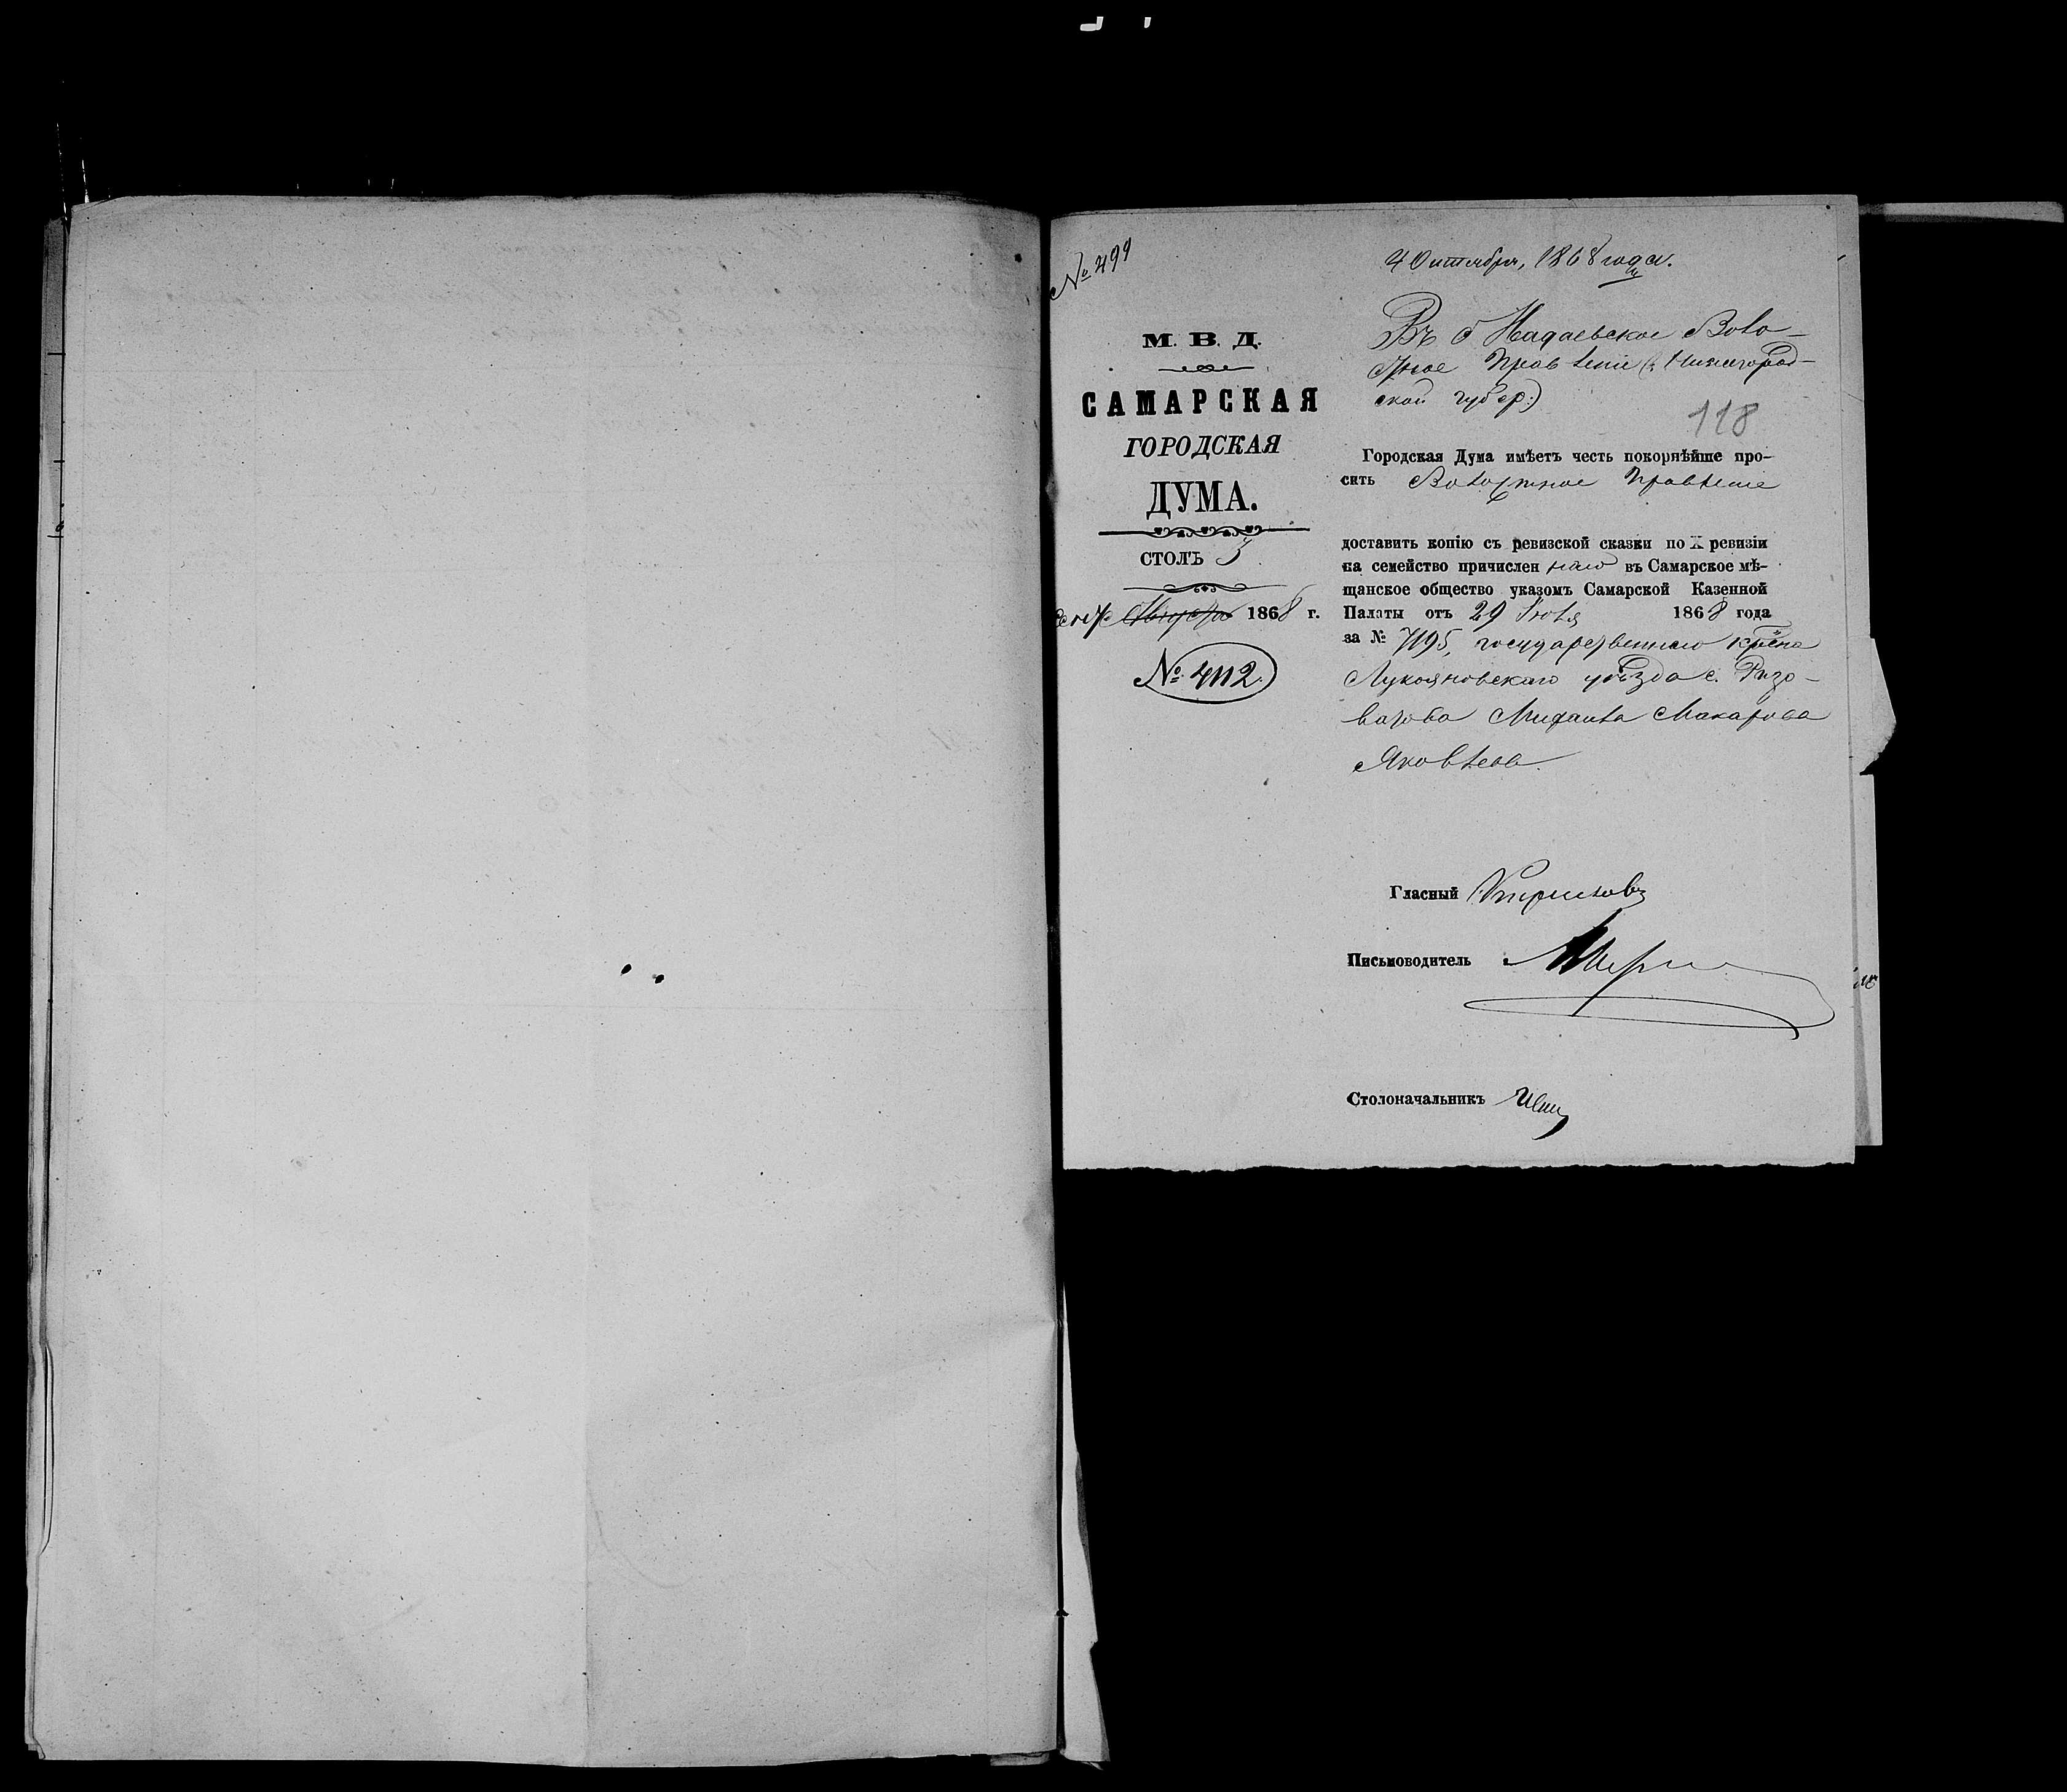 № 499
4 Октября, 1868 года.
М. В. Д.
САМАРСКАЯ
ГОРОДСКАЯ
ДУМА.
СТОЛЪ 3
1868 г.
№ 4112.
Въ Волос-
тное Правленіе (Нижегород-
ской губер:)
118
Городская Дума имѣетъ честь покорнѣйше про-
сить Волостное Правленіе
доставить копію съ ревизской сказки по X ревизіи
на семейство причисленнаго въ Самарское мѣ-
щанское общество указомъ Самарской Казенной
Палаты отъ 29 Іюля 1868 года
за № 7195, государственнаго крѣна
Лукояновскаго уѣзда с. Ризо-
ватова Михаила Макарова
Яковлева.
Гласный
Письмоводитель
Столоначальникъ